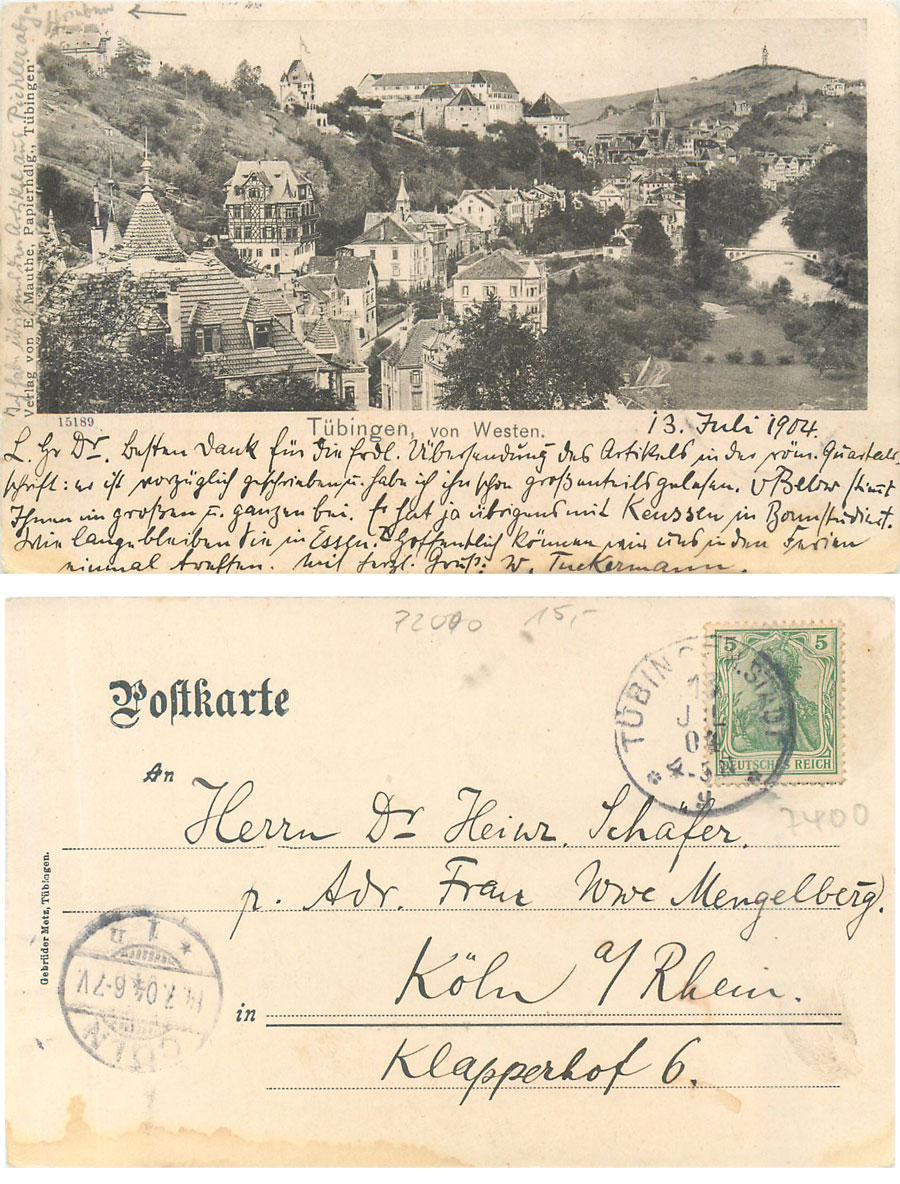 Verlag von E. Mauthe, Papierhdlg., Tübingen.
15189
Tübingen, von Westen.
13. Juli 1904.
L. Hr Dr. Besten Dank für die frdl. Übersendung des Artikels in der röm. Quartal-
schrift: er ist vorzüglich geschrieben u. habe ich ihn schon großenteils gelesen. v Below stimmt
Ihnen im großen u. ganzen bei. Er hat ja übrigens mit Keussen in Bonn studiert.
Wie lange bleiben Sie in Essen? Hoffentlich können wir uns in den Ferien
einmal treffen. Mit herzl. Gruß: W. Tuckermann.
15,-
Postkarte
5 5
DEUTSCHES REICH
TÜBINGEN.STADT
13
JUL
04
4-5N
7400
An
Herrn Dr Heinr. Schäfer.
p. Adr. Franz Wwe Mengelberg.
Köln a/Rhein.
in
Klapperhof 6.
Gebrüder Metz, Tübingen.
CÖLN
14.7.04.6-7V.